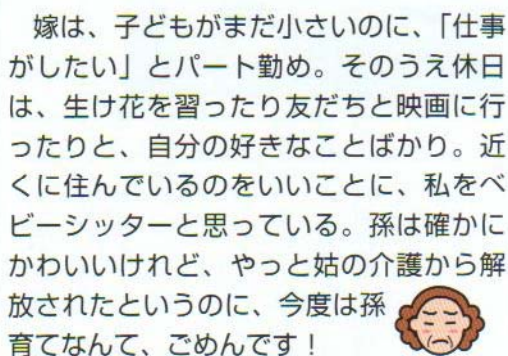 嫁は、子どもがまだ小さいのに、「仕事
がしたい」とパート勤め。そのうえ休日
は、生け花を習ったり友だちと映画に行
ったりと、自分の好きなことばかり。近
くに住んでいるのをいいことに、私をベ
ビーシッターと思っている。孫は確かに
かわいいけれど、やっと姑の介護から解
放されたというのに、今度は孫
育てなんて、ごめんです！